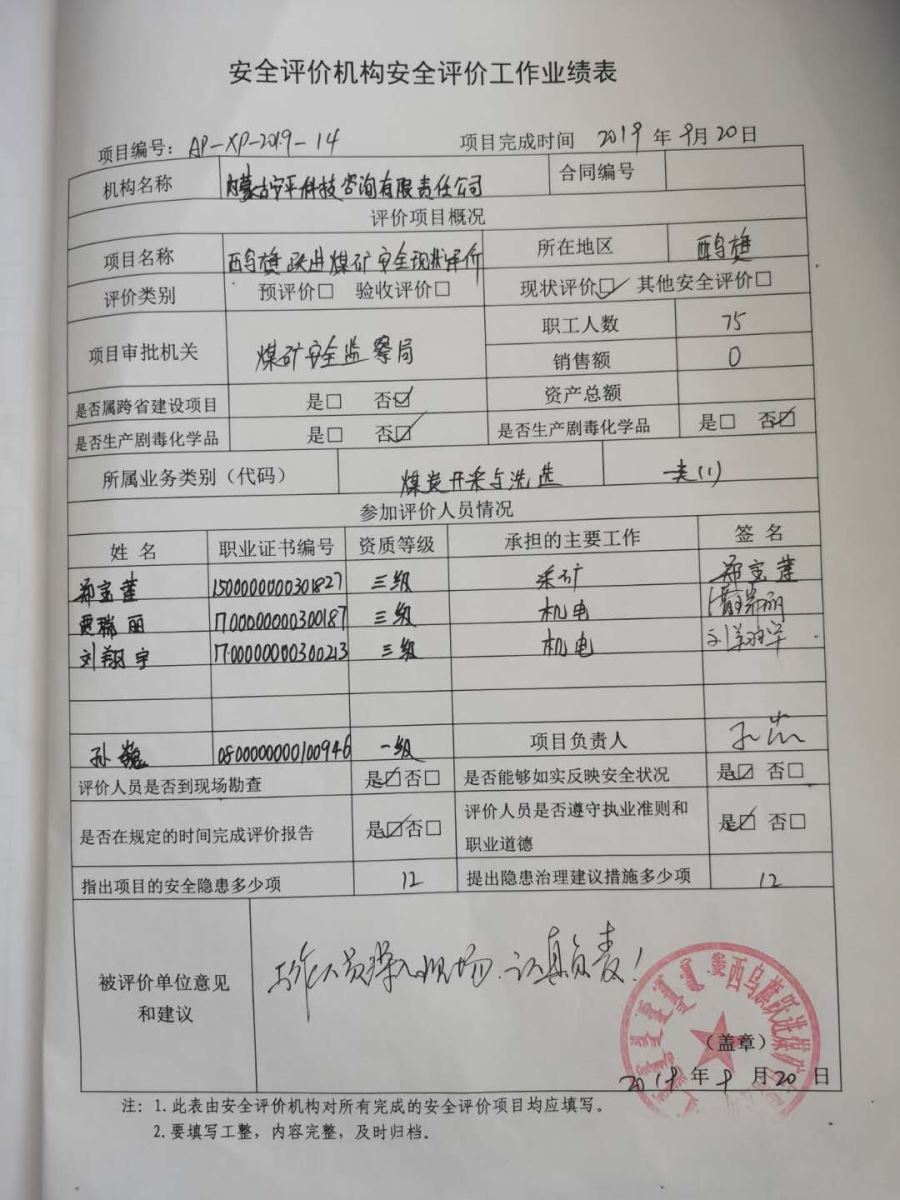 安全评价机构安全评价工作业绩表
项目编号：AP-XP-2019-14 项目完成时间 2019 年 9月 20日
机构名称 内蒙古安平科技咨询有限责任公司 合同编号
评价项目概况
项目名称 西乌旗跃进煤矿安全现状评价 所在地区 西乌旗
评价类别 预评价□ 验收评价□ 现状评价☑ 其他安全评价□
项目审批机关 煤矿安全监察局 职工人数 75
销售额 0
是否属跨省建设项目 是□ 否☑ 资产总额
是否生产剧毒化学品 是□ 否☑ 是否生产剧毒化学品 是□ 否☑
所属业务类别（代码） 煤炭开采与洗选 一类(1)
参加评价人员情况
姓 名 职业证书编号 资质等级 承担的主要工作 签 名
郑宝莲 1500000000301827 三级 采矿 郑宝莲
贾瑞丽 1700000000300187 三级 机电 贾瑞丽
刘翔宇 1700000000300213 三级 机电 刘翔宇
孙巍 0800000000100946 一级 项目负责人
评价人员是否到现场勘查 是☑否□ 是否能够如实反映安全状况 是☑ 否□
是否在规定的时间完成评价报告 是☑否□ 评价人员是否遵守执业准则和
职业道德 是☑ 否□
指出项目的安全隐患多少项 12 提出隐患治理建议措施多少项 12
被评价单位意见
和建议
工作人员深入现场，认真负责！
西乌旗跃进煤矿
（盖章）
2019 年 9 月 20 日
注：1.此表由安全评价机构对所有完成的安全评价项目均应填写。
2.要填写工整，内容完整，及时归档。